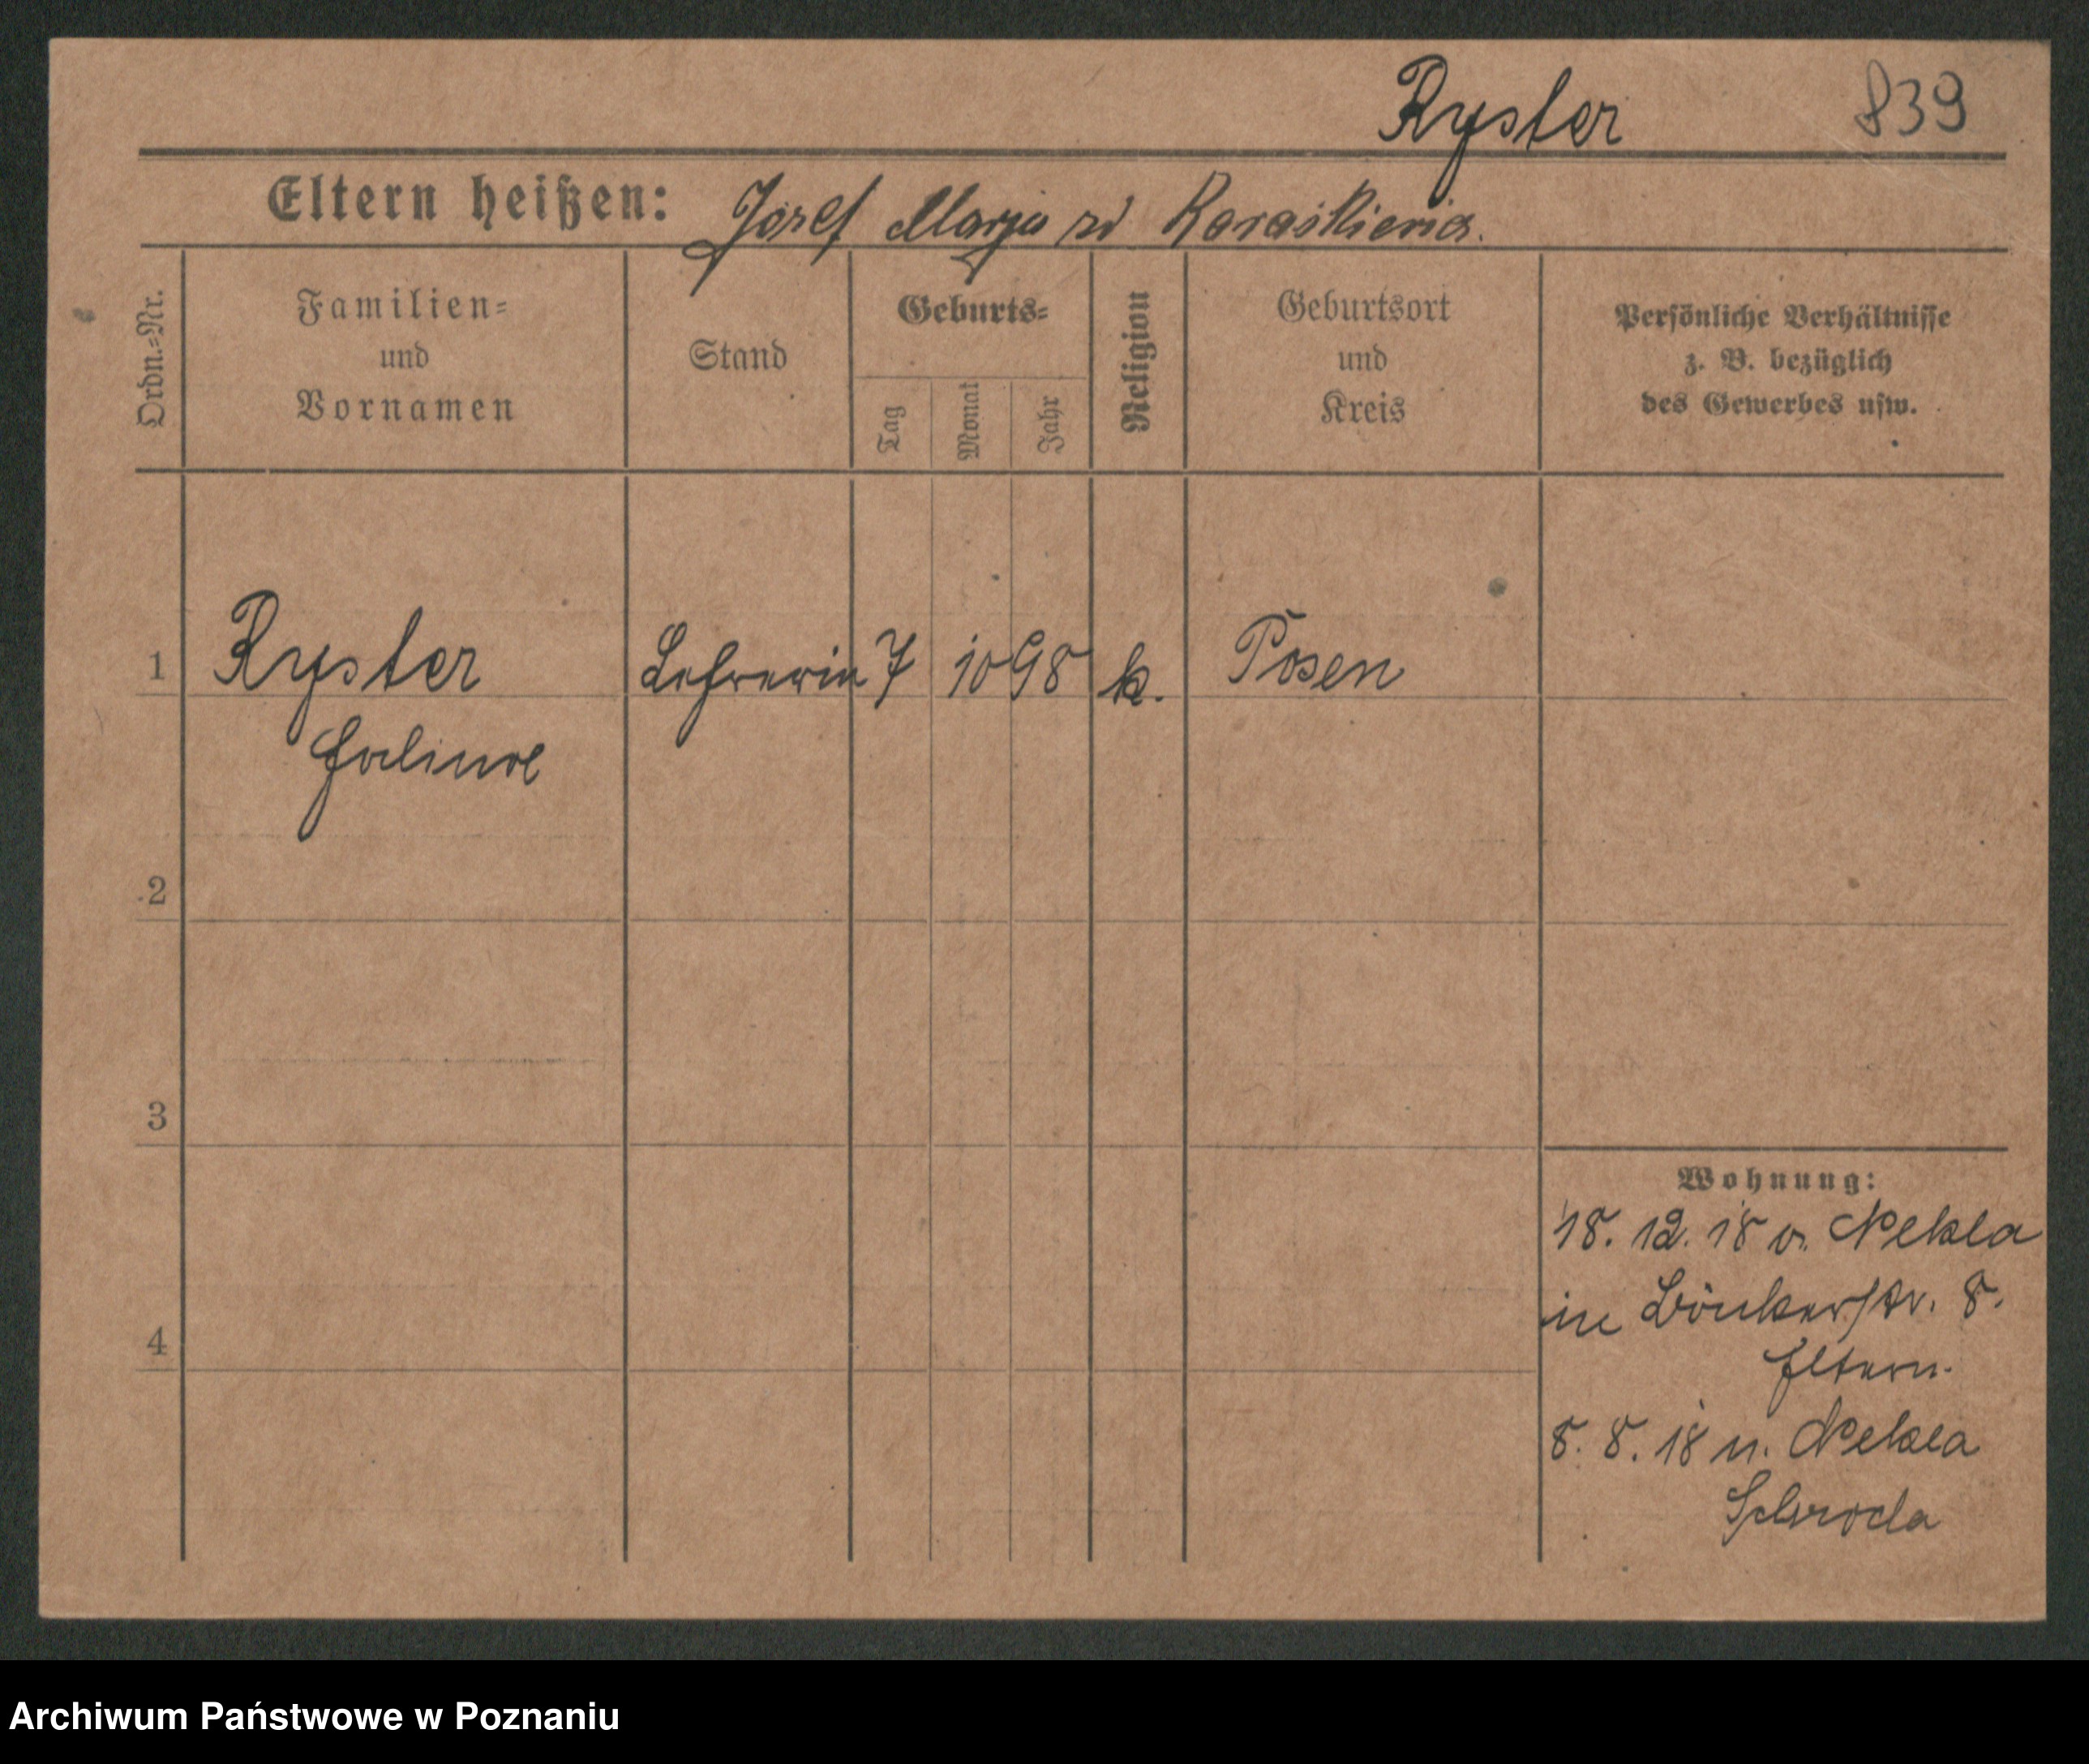 Ryster 839
Eltern heißen: Józef Marja zd Karaśkiewicz.
Ordn.-Nr.
Familien-
und
Vornamen
Stand
Geburts-
Tag
Monat
Jahr
Religion
Geburtsort
und
Kreis
Persönliche Verhältnisse
z. B. bezüglich
des Gewerbes usw.
1 Ryster Lehrerin 7 10 98 k. Posen
Halina
2
3
4
Wohnung:
18. 12. 18 v. Nekla
in Bäckerstr. 8.
Eltern.
8. 8. 18 n. Nekla
Schroda
Archiwum Państwowe w Poznaniu